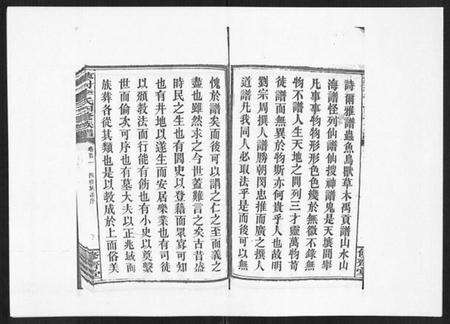 詩爾雅譜蟲魚鳥獸草木禹貢譜山水山
海譜怪列仙譜仙搜神譜鬼是天壤間舉
凡事事物物形形色色幾於無微不錄無
物不譜人生天地之間列三才靈萬物苟
徒譜而無異於物斯亦何貴乎人也故明
劉宗周撰人譜勝朝閔忠推而廣之撰人
道譜凡我同人必取法乎是而後可以無
愧於譜而後可以譜之仁之至而義之
盡也雖然求之今世蓋難言之矣古昔盛
時民之生也有閭史以登籍而眾寡可知
也有井地以遂生而安居樂業也有司徒
以頒教法而行能有飭也有小史以奠繫
世而倫次可序也有墓大夫以正兆域而
族葬各從其類也是以教成於上而俗美
卷首一